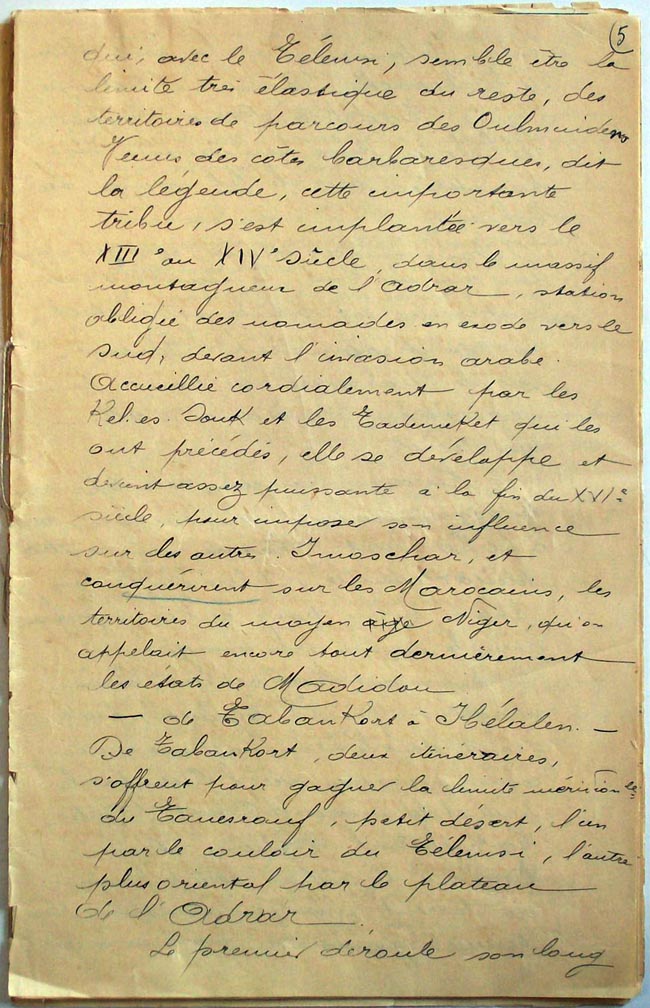 5
qui, avec le Télemsi, semble être la
limite très élastique du reste, des
territoires de parcours des Oulmindens
Venus des côtes barbaresques, dit
la légende, cette importante
tribu, s'est implantée vers le
XIII° ou XIV° siècle, dans le massif
montagneux de l'Adrar, station
obligée des nomades en exode vers le
sud, devant l'invasion arabe.
Accueillie cordialement par les
Kel.es.Souk et les Tademeket qui les
ont précédés, elle se développe et
devint assez puissante à la fin du XVIe
siècle, pour imposer son influence
sur les autres Imoschar, et
conquérirent sur les Marocains, les
territoires du moyen âge Niger, qu'on
appelait encore tout dernièrement
les états de Madidou
— de Tabankort à Ibélalen. —
De Tabankort, deux itinéraires,
s'offrent pour gagner la limite méridionale
du Tanesrouf, petit désert, l'un
par le couloir du Télemsi, l'autre
plus oriental par le plateau
de l'Adrar
Le premier déroule son long